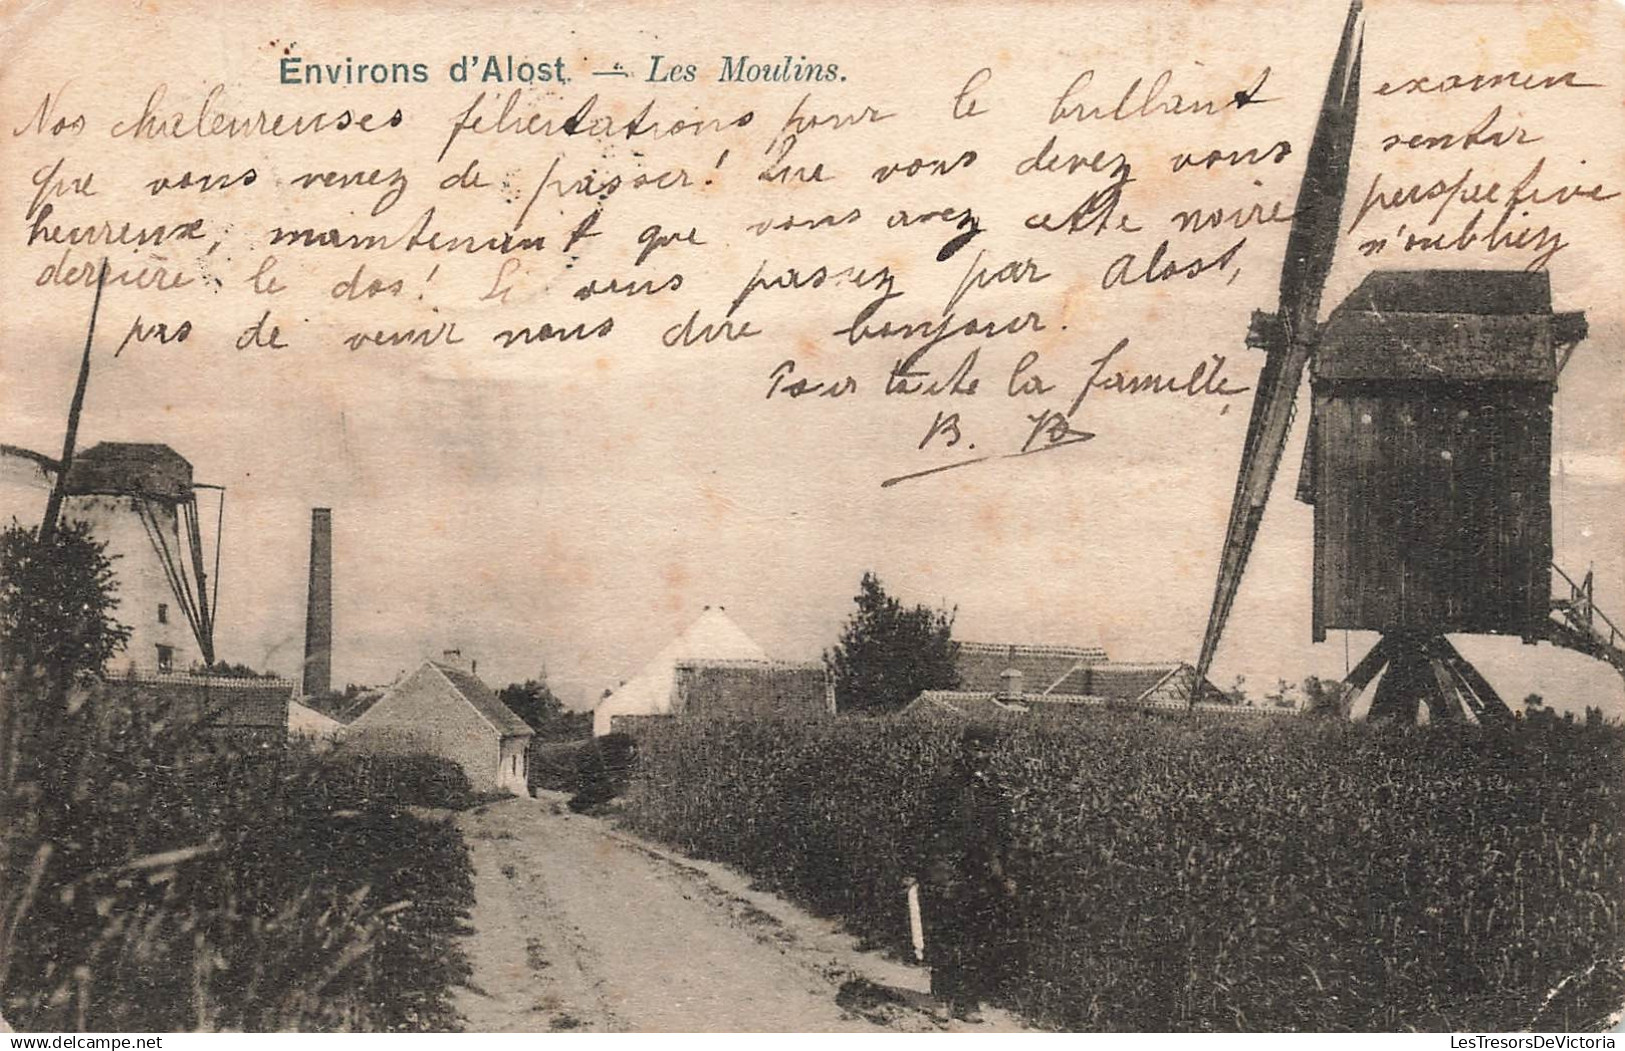 Environs d'Alost. — Les Moulins.
Nos chaleureuses félicitations pour le brillant examen
que vous venez de passer! Que vous devez vous sentir
heureux, maintenant que vous avez cette noire perspective
derrière le dos! Si vous passez par Alost, n'oubliez
pas de venir nous dire bonjour.
Pour toute la famille,
B. B
LesTresorsDeVictoria